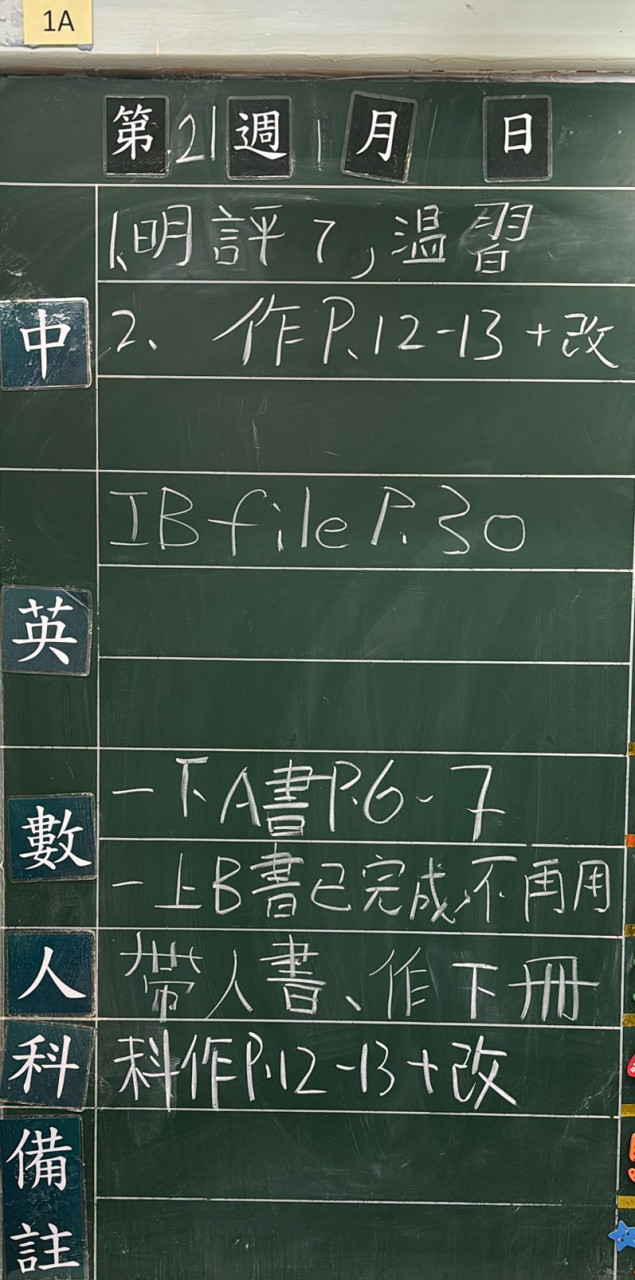 1A
第21週1月 日
1、明評7,溫習
中
2、作P.12-13+改
IB file P.30
英
一下A書P.6-7
數
一上B書已完成,不再用
人 帶人書、作下冊
科 科作P.12-13+改
備註